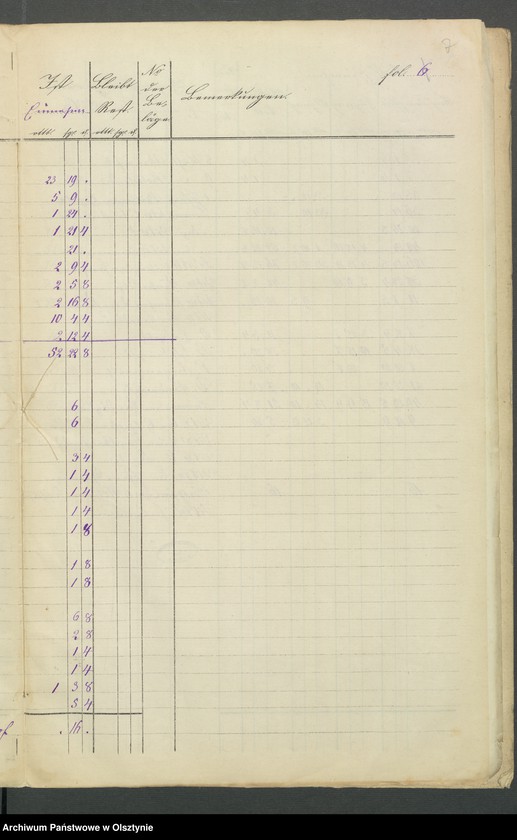 7
fol. 6
Ist Bleibt No
der
Einnahme Rest Be-
läge Bemerkungen.
rtlr sgr d. rtlr sgr d.
23 19 .
5 9 .
1 24 .
1 21 4
21 .
2 9 4
2 5 8
2 16 8
10 4 4
2 12 4
52 22 8
6
6
3 4
1 4
1 4
1 4
1 8
1 8
1 8
6 8
2 8
1 4
1 4
1 3 8
5 4
. 16 .
Archiwum Państwowe w Olsztynie